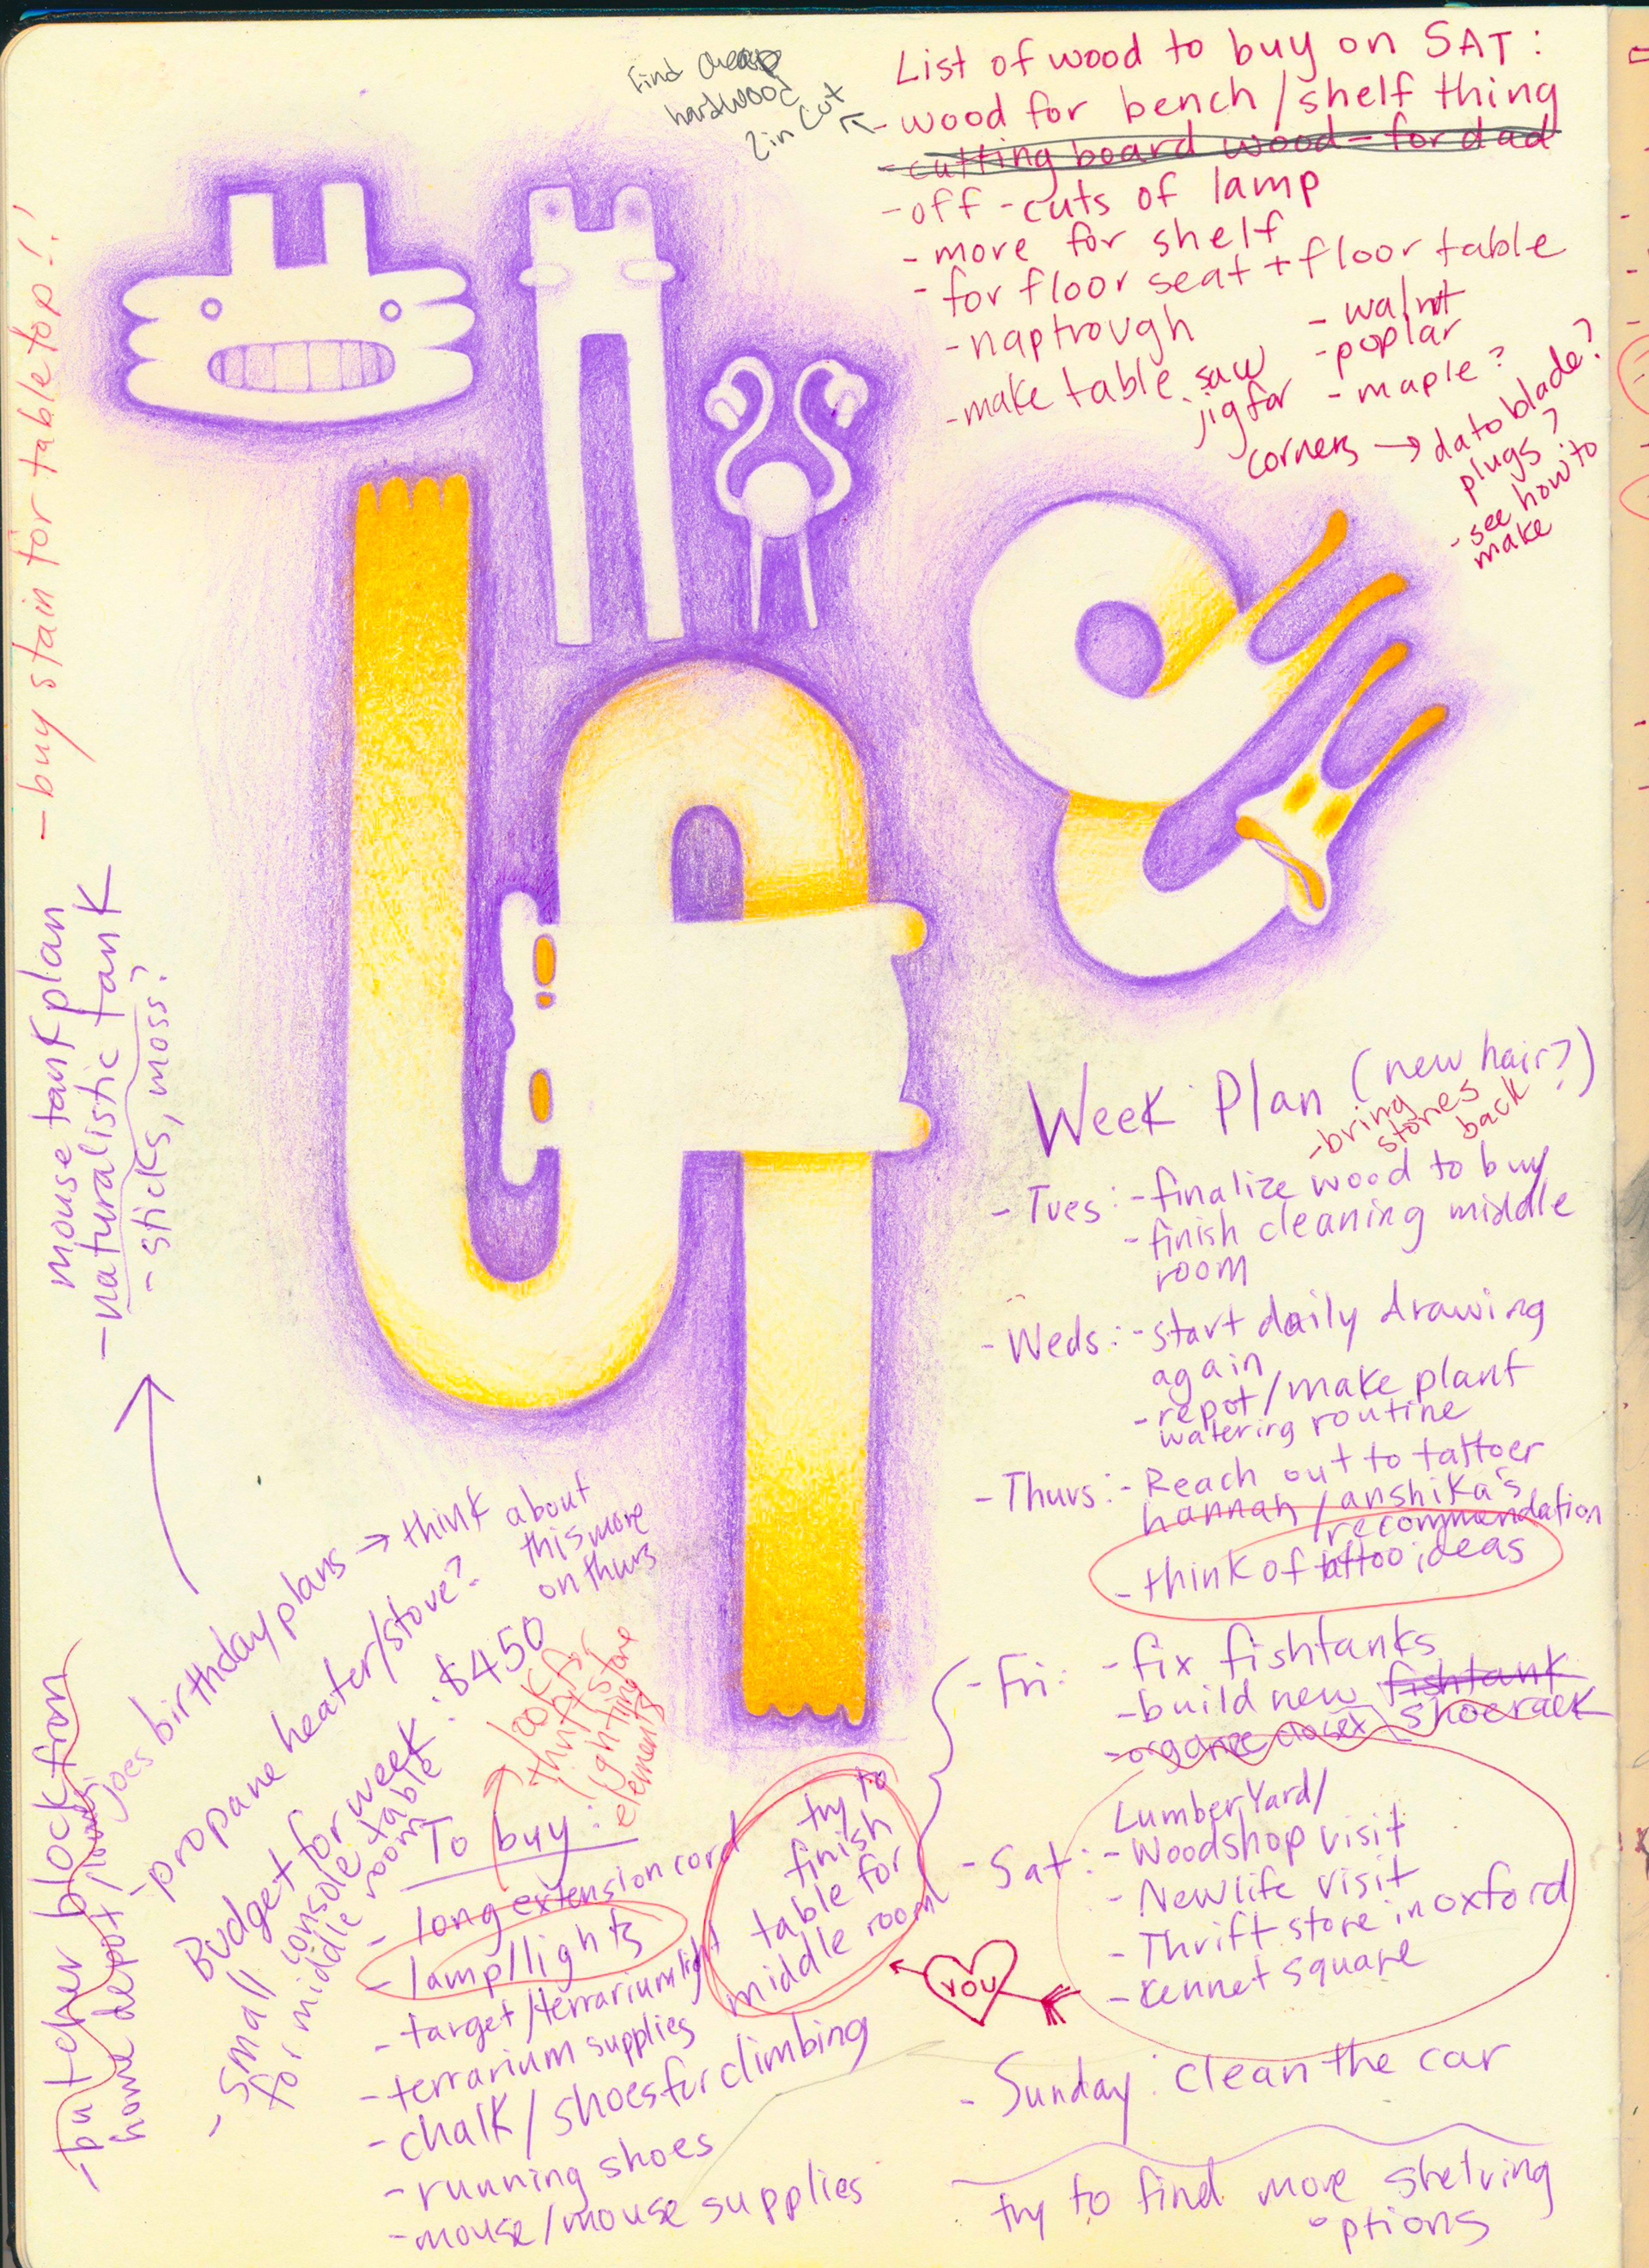 Find cheap
hardwood
2in cut
List of wood to buy on SAT:
- wood for bench/shelf thing
- cutting board wood - for dad
- off-cuts of lamp
- more for shelf
- for floor seat + floor table
- naptrough
- make table saw
jig for
corners → dato blade?
plugs?
- see how to
make
- walnut
- poplar
- maple?
- buy stain for tabletop!!
mouse tank plan
- naturalistic tank
- sticks, moss?
Week Plan (new hair?)
- bring
stories
back
- Tues: - finalize wood to buy
- finish cleaning middle
room
- Weds: - start daily drawing
again
- repot/make plant
watering routine
- Thurs: - Reach out to tattoer
hannah/anshika's
recommendation
- think of tattoo ideas
- Fri: - fix fishtanks
- build new fishtank
shoerack
- organize closet
LumberYard/
- Sat: - Woodshop visit
- Newlife visit
- Thrift store in oxford
- Kennet square
- Sunday: clean the car
try to find more shelving
options
joes birthday plans → think about
this more
on thurs
- propane heater/stove?
Budget for week: $450
- small console table
for middle room
- butcher block from
home depot/lowes
look for
thrift store
lighting
elements
To buy:
- long extension cord
- lamp/lights
- target/terrarium light
- terrarium supplies
- chalk/shoes for climbing
- running shoes
- mouse/mouse supplies
try to
finish
table for
middle room
YOU